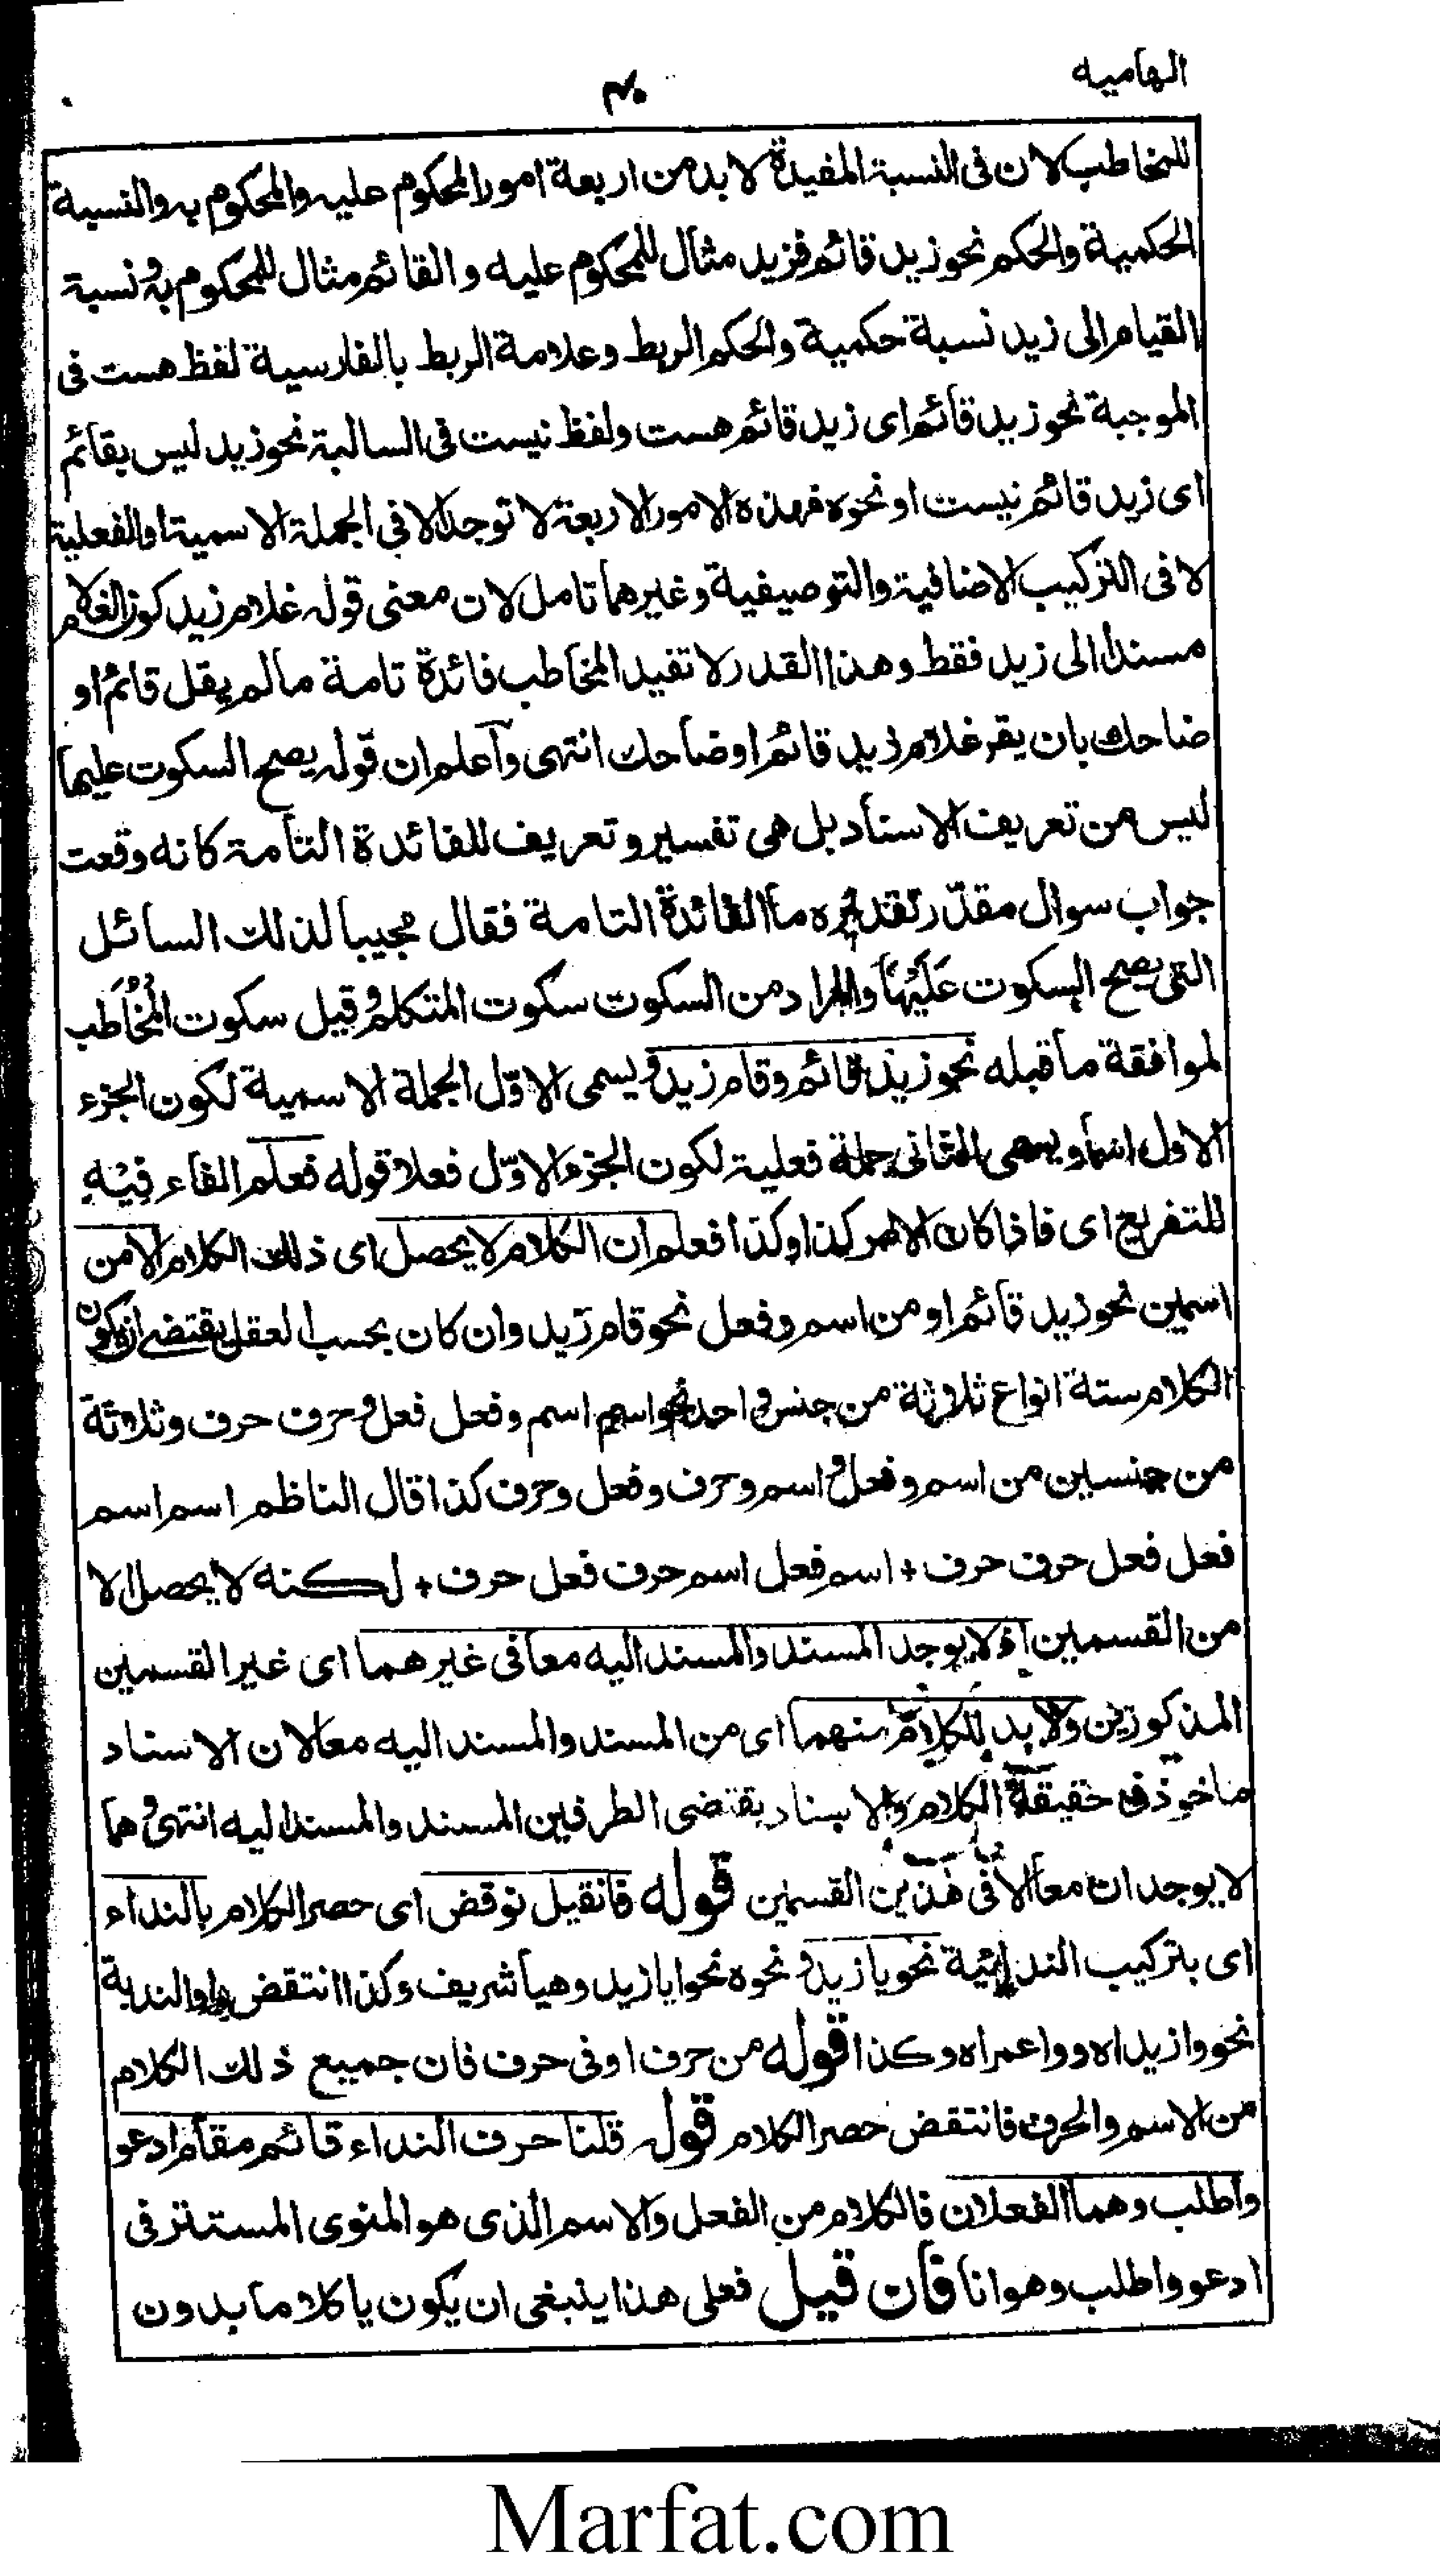 الهاميه
٣٠
للمخاطب لان فى النسبة المفيدة لا بد من اربعة امور المحكوم عليه والمحكوم به والنسبة
الحكمية والحكم نحو زيد قائم فزيد مثال للمحكوم عليه و القائم مثال للمحكوم به و نسبة
القيام الى زيد نسبة حكمية والحكم الربط وعلامة الربط بالفارسية لفظ هست فى
الموجبة نحو زيد قائم اى زيد قائم هست ولفظ نيست فى السالبة نحو زيد ليس بقائم
اى زيد قائم نيست او نحوه فهذه الامور الاربعة لا توجد الا فى الجملة الاسمية او الفعلية
لا فى التركيب الاضافية والتوصيفية وغيرهما تامل لان معنى قوله غلام زيد كون الغلام
مسندا الى زيد فقط وهذا القدر لا تفيد المخاطب فائدة تامة مالم يقل قائم او
ضاحك بان يقر غلام زيد قائم او ضاحك انتهى واعلم ان قوله يصح السكوت عليها
ليس من تعريف الاسناد بل هى تفسير و تعريف للفائدة التامة كانه وقعت
جواب سوال مقدّر تقديره ما الفائدة التامة فقال مجيبا لذلك السائل
التى يصح السكوت عَلَيْهَا والمراد من السكوت سكوت المتكلم و قيل سكوت المُخَاطَب
لموافقة ما قبله نحو زيد قائم وقام زيد و يسمى الاوّل الجملة الاسمية لكون الجزء
الاول اسما و يسمى الثانى جملة فعلية لكون الجزء الاوّل فعلا قوله فعلم الفاء فِيْهِ
للتفريع اى فاذا كان الامر كذا وكذا فعلم ان الكلام لا يحصل اى ذلك الكلام الا من
اسمين نحو زيد قائم او من اسم وفعل نحو قام زيد وان كان بحسب العقل يقتضى ان يكون
الكلام ستة انواع ثلاثة من جنس واحد نحو اسم اسم و فعل فعل و حرف حرف و ثلاثة
من جنسين من اسم و فعل و اسم وحرف و فعل وحرف كذا قال الناظم اسم اسم
فعل فعل حرف حرف + اسم فعل اسم حرف فعل حرف + لكنه لا يحصل الا
من القسمين اذ لا يوجد المسند والمسند اليه معا فى غيرهما اى غير القسمين
المذكورين ولا بد للكلام منهما اى من المسند والمسند اليه معا لان الاسناد
ماخوذ فى حقيقة الكلام والاسناد يقتضى الطرفين المسند والمسند اليه انتهى و هما
لا يوجدان معا الا فى هذين القسمين قوله فان قيل نوقض اى حصر الكلام بالنداء
اى بتركيب الندائية نحو يا زيد و نحوه نحو ايا زيد وهيا شريف وكذا انتقض بواو الندبة
نحو وا زيداه و وا عمراه و كذا قوله من حرف او فى حرف فان جميع ذلك الكلام
من الاسم والحرف فانتقض حصر الكلام قوله قلنا حرف النداء قائم مقام ادعو
واطلب وهما الفعلان فالكلام من الفعل والاسم الذى هو المنوى المستتر فى
ادعو واطلب وهو انا فان قيل فعلى هذا ينبغى ان يكون يا كلاما بدون
Marfat.com